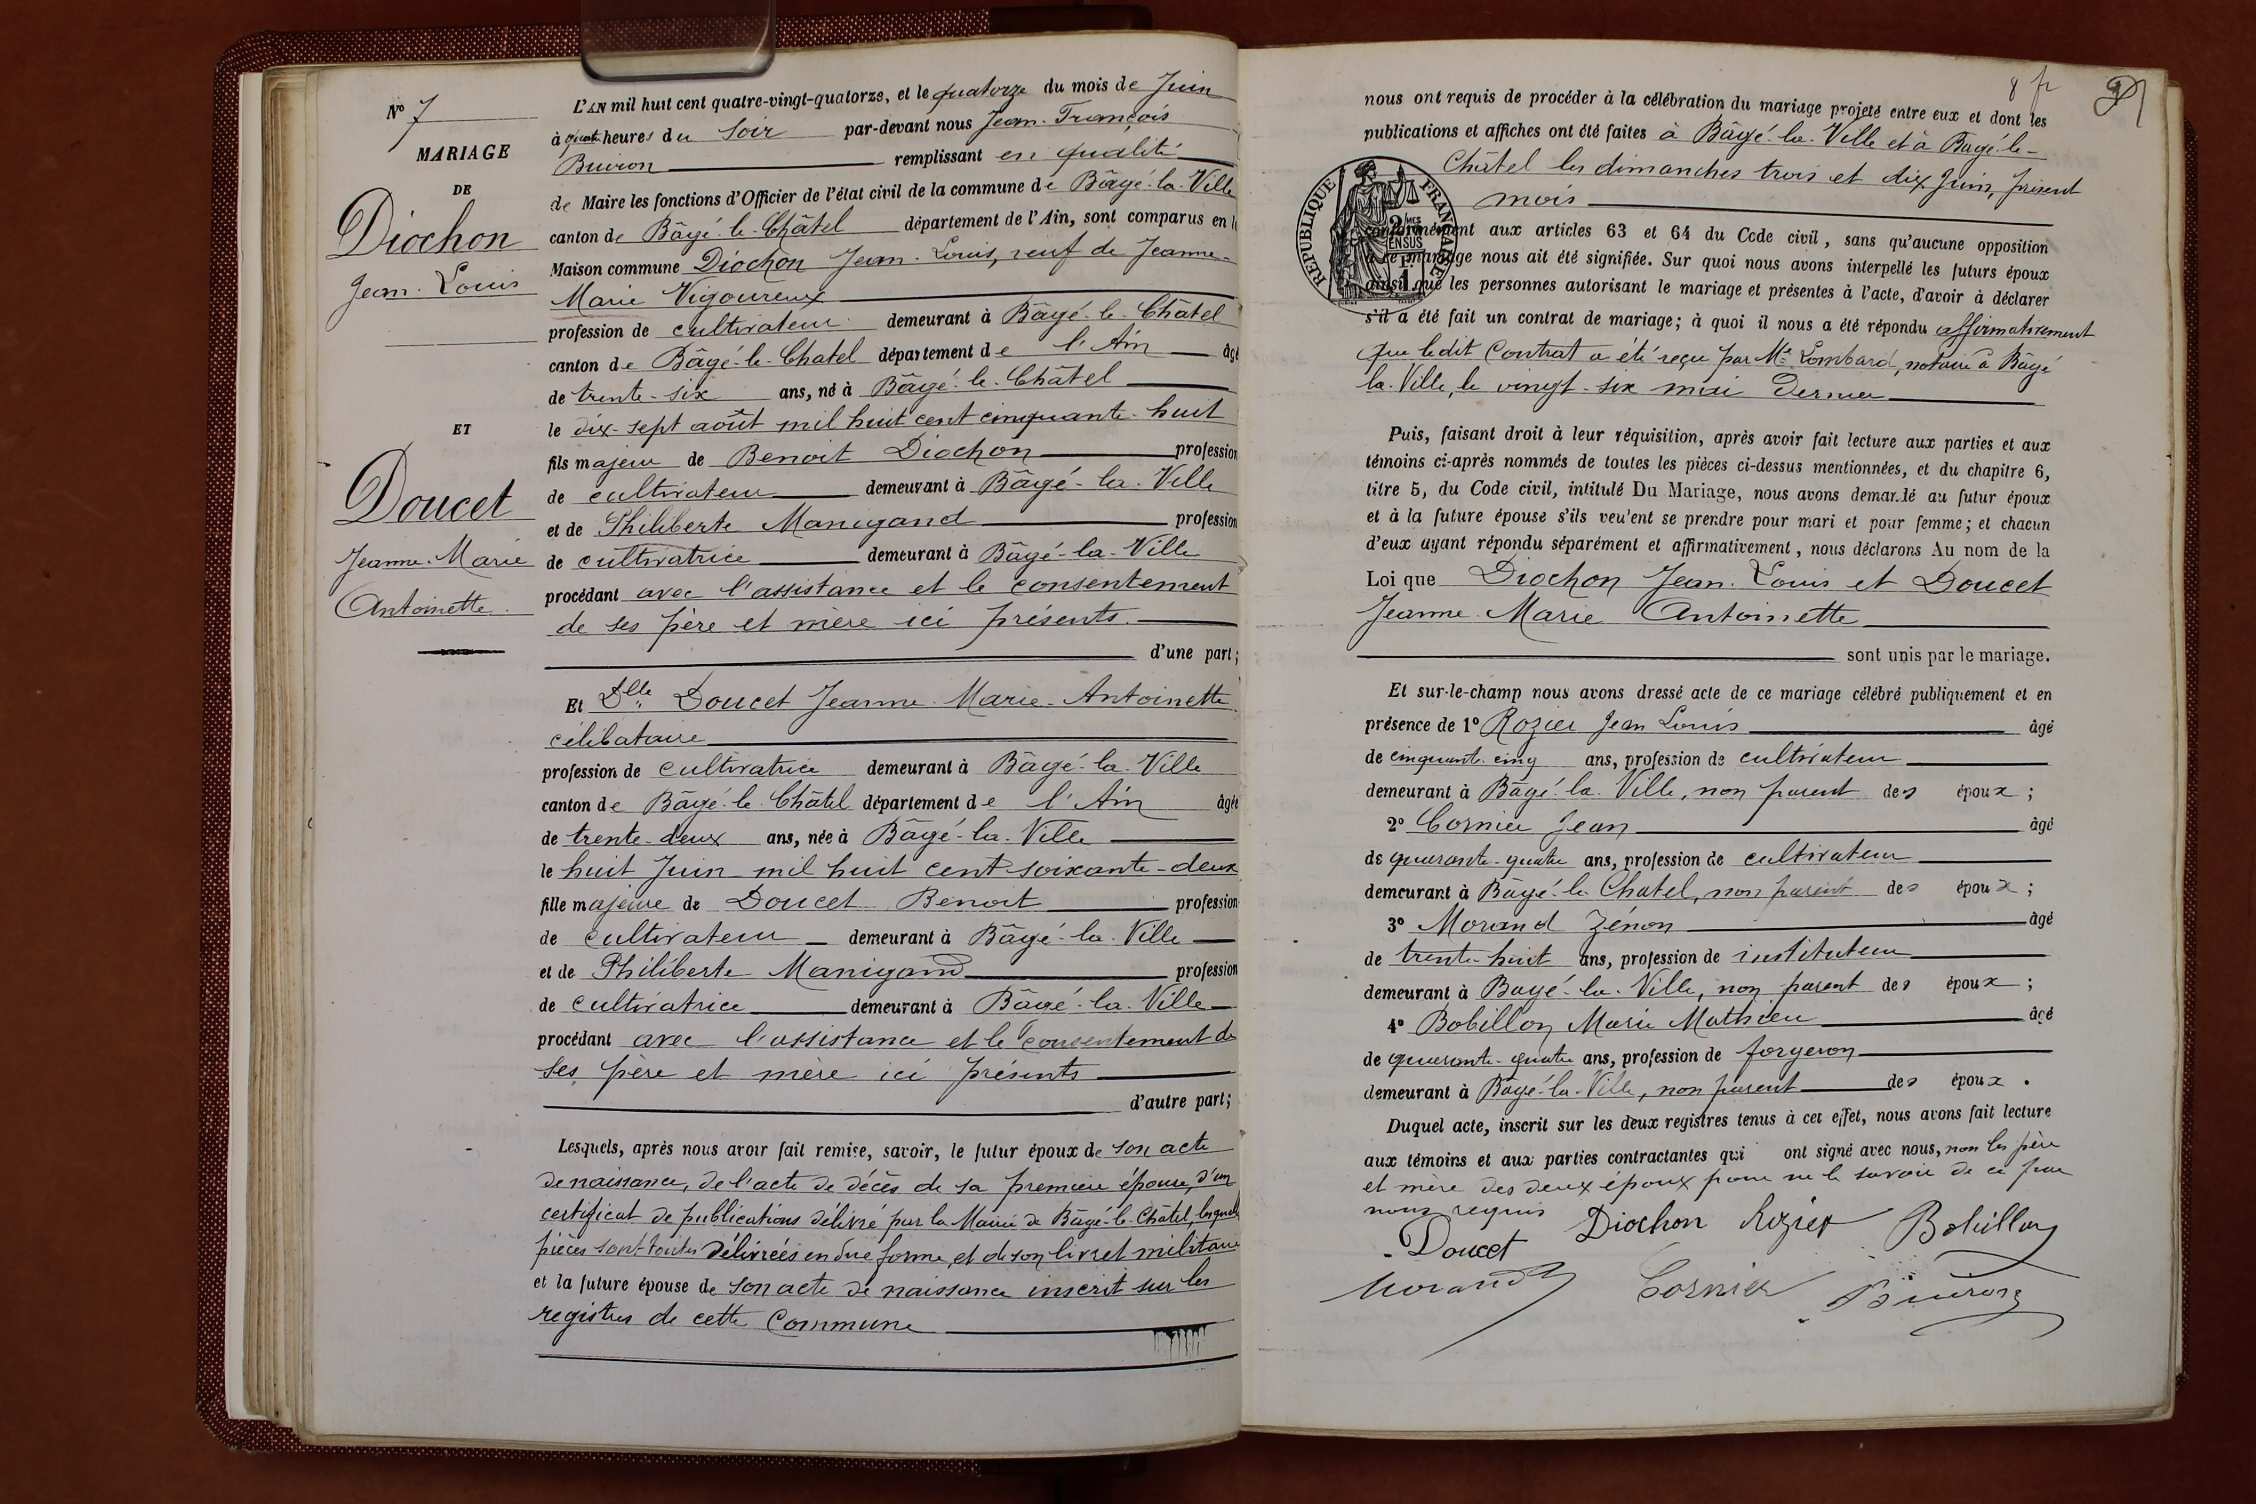 N° 7
MARIAGE
DE
Diochon
Jean-Louis
ET
Doucet
Jeanne-Marie
Antoinette
L'AN mil huit cent quatre-vingt-quatorze, et le quatorze du mois de Juin
à quatre heures du soir par-devant nous Jean-François
Buiron remplissant en qualité
de Maire les fonctions d'Officier de l'état civil de la commune de Bâgé-la-Ville
canton de Bâgé-le-Châtel département de l'Ain, sont comparus en la
Maison commune Diochon Jean-Louis, veuf de Jeanne-
Marie Vigoureux
profession de cultivateur demeurant à Bâgé-le-Châtel
canton de Bâgé-le-Chatel département de l'Ain âgé
de trente-six ans, né à Bâgé-le-Châtel
le dix-sept août mil huit cent cinquante-huit
fils majeur de Benoit Diochon profession
de cultivateur demeurant à Bâgé-la-Ville
et de Philiberte Manigand profession
de cultivatrice demeurant à Bâgé-la-Ville
procédant avec l'assistance et le consentement
de ses père et mère ici présents.
d'une part;
Et Dlle Doucet Jeanne-Marie-Antoinette
célibataire
profession de cultivatrice demeurant à Bâgé-la-Ville
canton de Bâgé-le-Châtel département de l'Ain âgée
de trente-deux ans, née à Bâgé-la-Ville
le huit Juin mil huit cent soixante-deux
fille majeure de Doucet Benoit profession
de cultivateur demeurant à Bâgé-la-Ville
et de Philiberte Manigand profession
de cultivatrice demeurant à Bâgé-la-Ville
procédant avec l'assistance et le consentement de
ses père et mère ici présents
d'autre part;
Lesquels, après nous avoir fait remise, savoir, le futur époux de son acte
de naissance, de l'acte de décès de sa première épouse, d'un
certificat de publications délivré par la Mairie de Bâgé-le-Châtel, lesquelles
pièces sont toutes délivrées en due forme, et de son livret militaire
et la future épouse de son acte de naissance inscrit sur les
registres de cette Commune
8 fr
nous ont requis de procéder à la célébration du mariage projeté entre eux et dont les
publications et affiches ont été faites à Bâgé-la-Ville et à Bagé-le-
Châtel les dimanches trois et dix Juin, présent
mois
RÉPUBLIQUE FRANÇAISE
2 MES EN SUS
conformément aux articles 63 et 64 du Code civil, sans qu'aucune opposition
à ce mariage nous ait été signifiée. Sur quoi nous avons interpellé les futurs époux
ainsi que les personnes autorisant le mariage et présentes à l'acte, d'avoir à déclarer
s'il a été fait un contrat de mariage; à quoi il nous a été répondu affirmativement
que ledit Contrat a été reçu par Me Lombard, notaire à Bâgé
la-Ville, le vingt-six mai dernier
Puis, faisant droit à leur réquisition, après avoir fait lecture aux parties et aux
témoins ci-après nommés de toutes les pièces ci-dessus mentionnées, et du chapitre 6,
titre 5, du Code civil, intitulé Du Mariage, nous avons demandé au futur époux
et à la future épouse s'ils veulent se prendre pour mari et pour femme; et chacun
d'eux ayant répondu séparément et affirmativement, nous déclarons Au nom de la
Loi que Diochon Jean-Louis et Doucet
Jeanne-Marie Antoinette
sont unis par le mariage.
Et sur-le-champ nous avons dressé acte de ce mariage célébré publiquement et en
présence de 1° Rozier Jean Louis âgé
de cinquante-cinq ans, profession de cultivateur
demeurant à Bâgé-la-Ville, non parent des époux;
2° Cornier Jean âgé
de quarante-quatre ans, profession de cultivateur
demeurant à Bâgé-le-Chatel, non parent des époux;
3° Morand Zénon âgé
de trente-huit ans, profession de instituteur
demeurant à Bagé-la-Ville, non parent des époux;
4° Bobillon Marie Mathieu âgé
de quarante-quatre ans, profession de forgeron
demeurant à Bâgé-la-Ville, non parent des époux.
Duquel acte, inscrit sur les deux registres tenus à cet effet, nous avons fait lecture
aux témoins et aux parties contractantes qui ont signé avec nous, non les père
et mère des deux époux pour ne le savoir de ce par
nous requis
Doucet Diochon Rozier Bobillon
Morand Cornier Buiron